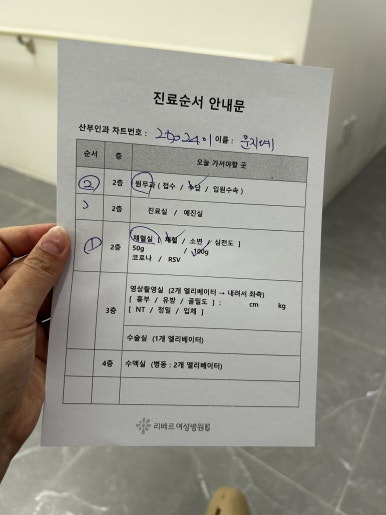 진료순서 안내문
산부인과 차트번호 : 이름 : 문지예
순서 층 오늘 가셔야할 곳
② 2층 원무과 ( 접수 / 수납 / 입원수속 )
2층 진료실 / 예진실
① 2층 채혈실 [ 채혈 / 소변 / 심전도 ]
50g / 100g
코로나 / RSV
3층 영상촬영실 (2개 엘리베이터 → 내려서 좌측)
[ 흉부 / 유방 / 골밀도 ] : cm kg
[ NT / 정밀 / 입체 ]
수술실 (1개 엘리베이터)
4층 수액실 (병동 : 2개 엘리베이터)
리베르여성병원